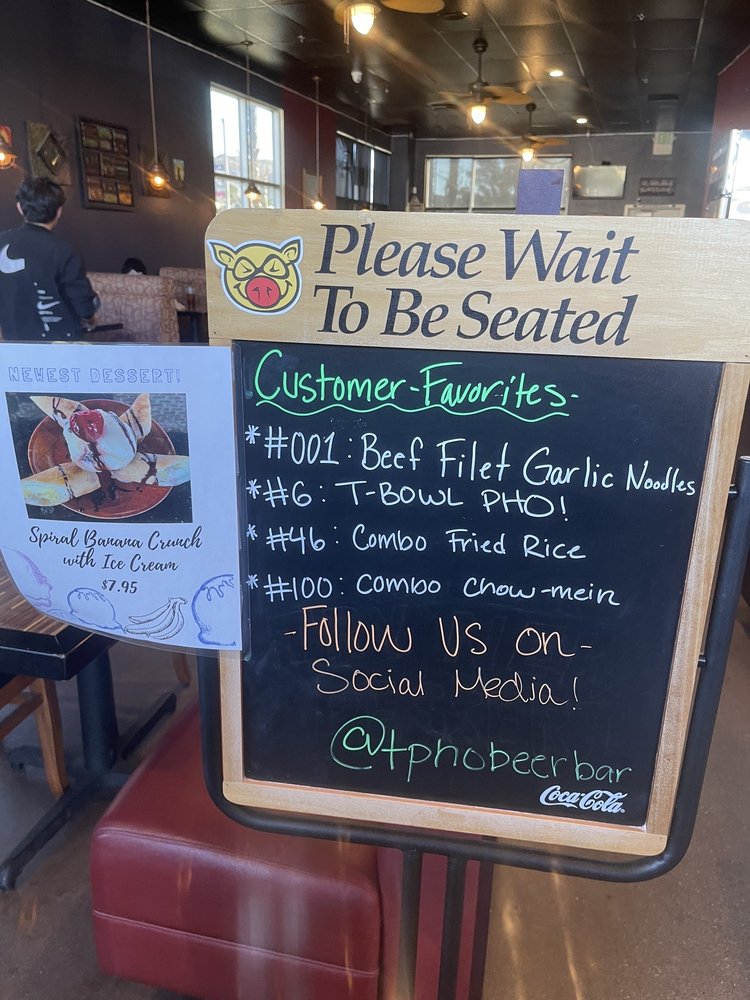 Please Wait
To Be Seated
NEWEST DESSERT!
Spiral Banana Crunch
with Ice Cream
$7.95
Customer-Favorites-
*#001: Beef Filet Garlic Noodles
*#6: T-BOWL PHO!
*#46: Combo Fried Rice
*#100: Combo Chow-mein
-Follow Us on-
Social Media!
@tphobeerbar
Coca-Cola